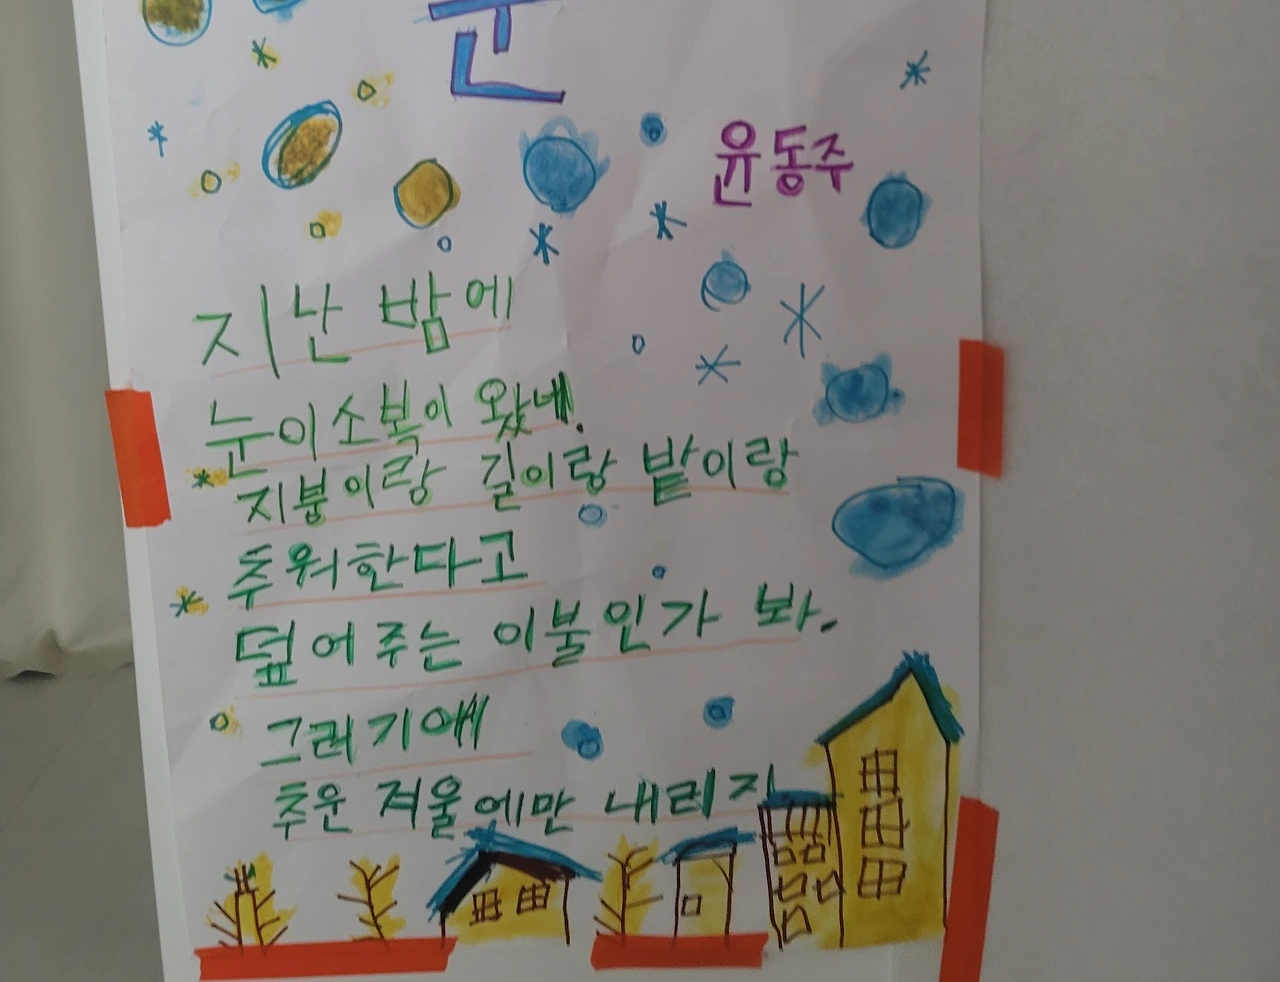 눈
윤동주
지난 밤에
눈이소복이 왔네.
지붕이랑 길이랑 밭이랑
추워한다고
덮어주는 이불인가 봐.
그러기에
추운 겨울에만 내리지